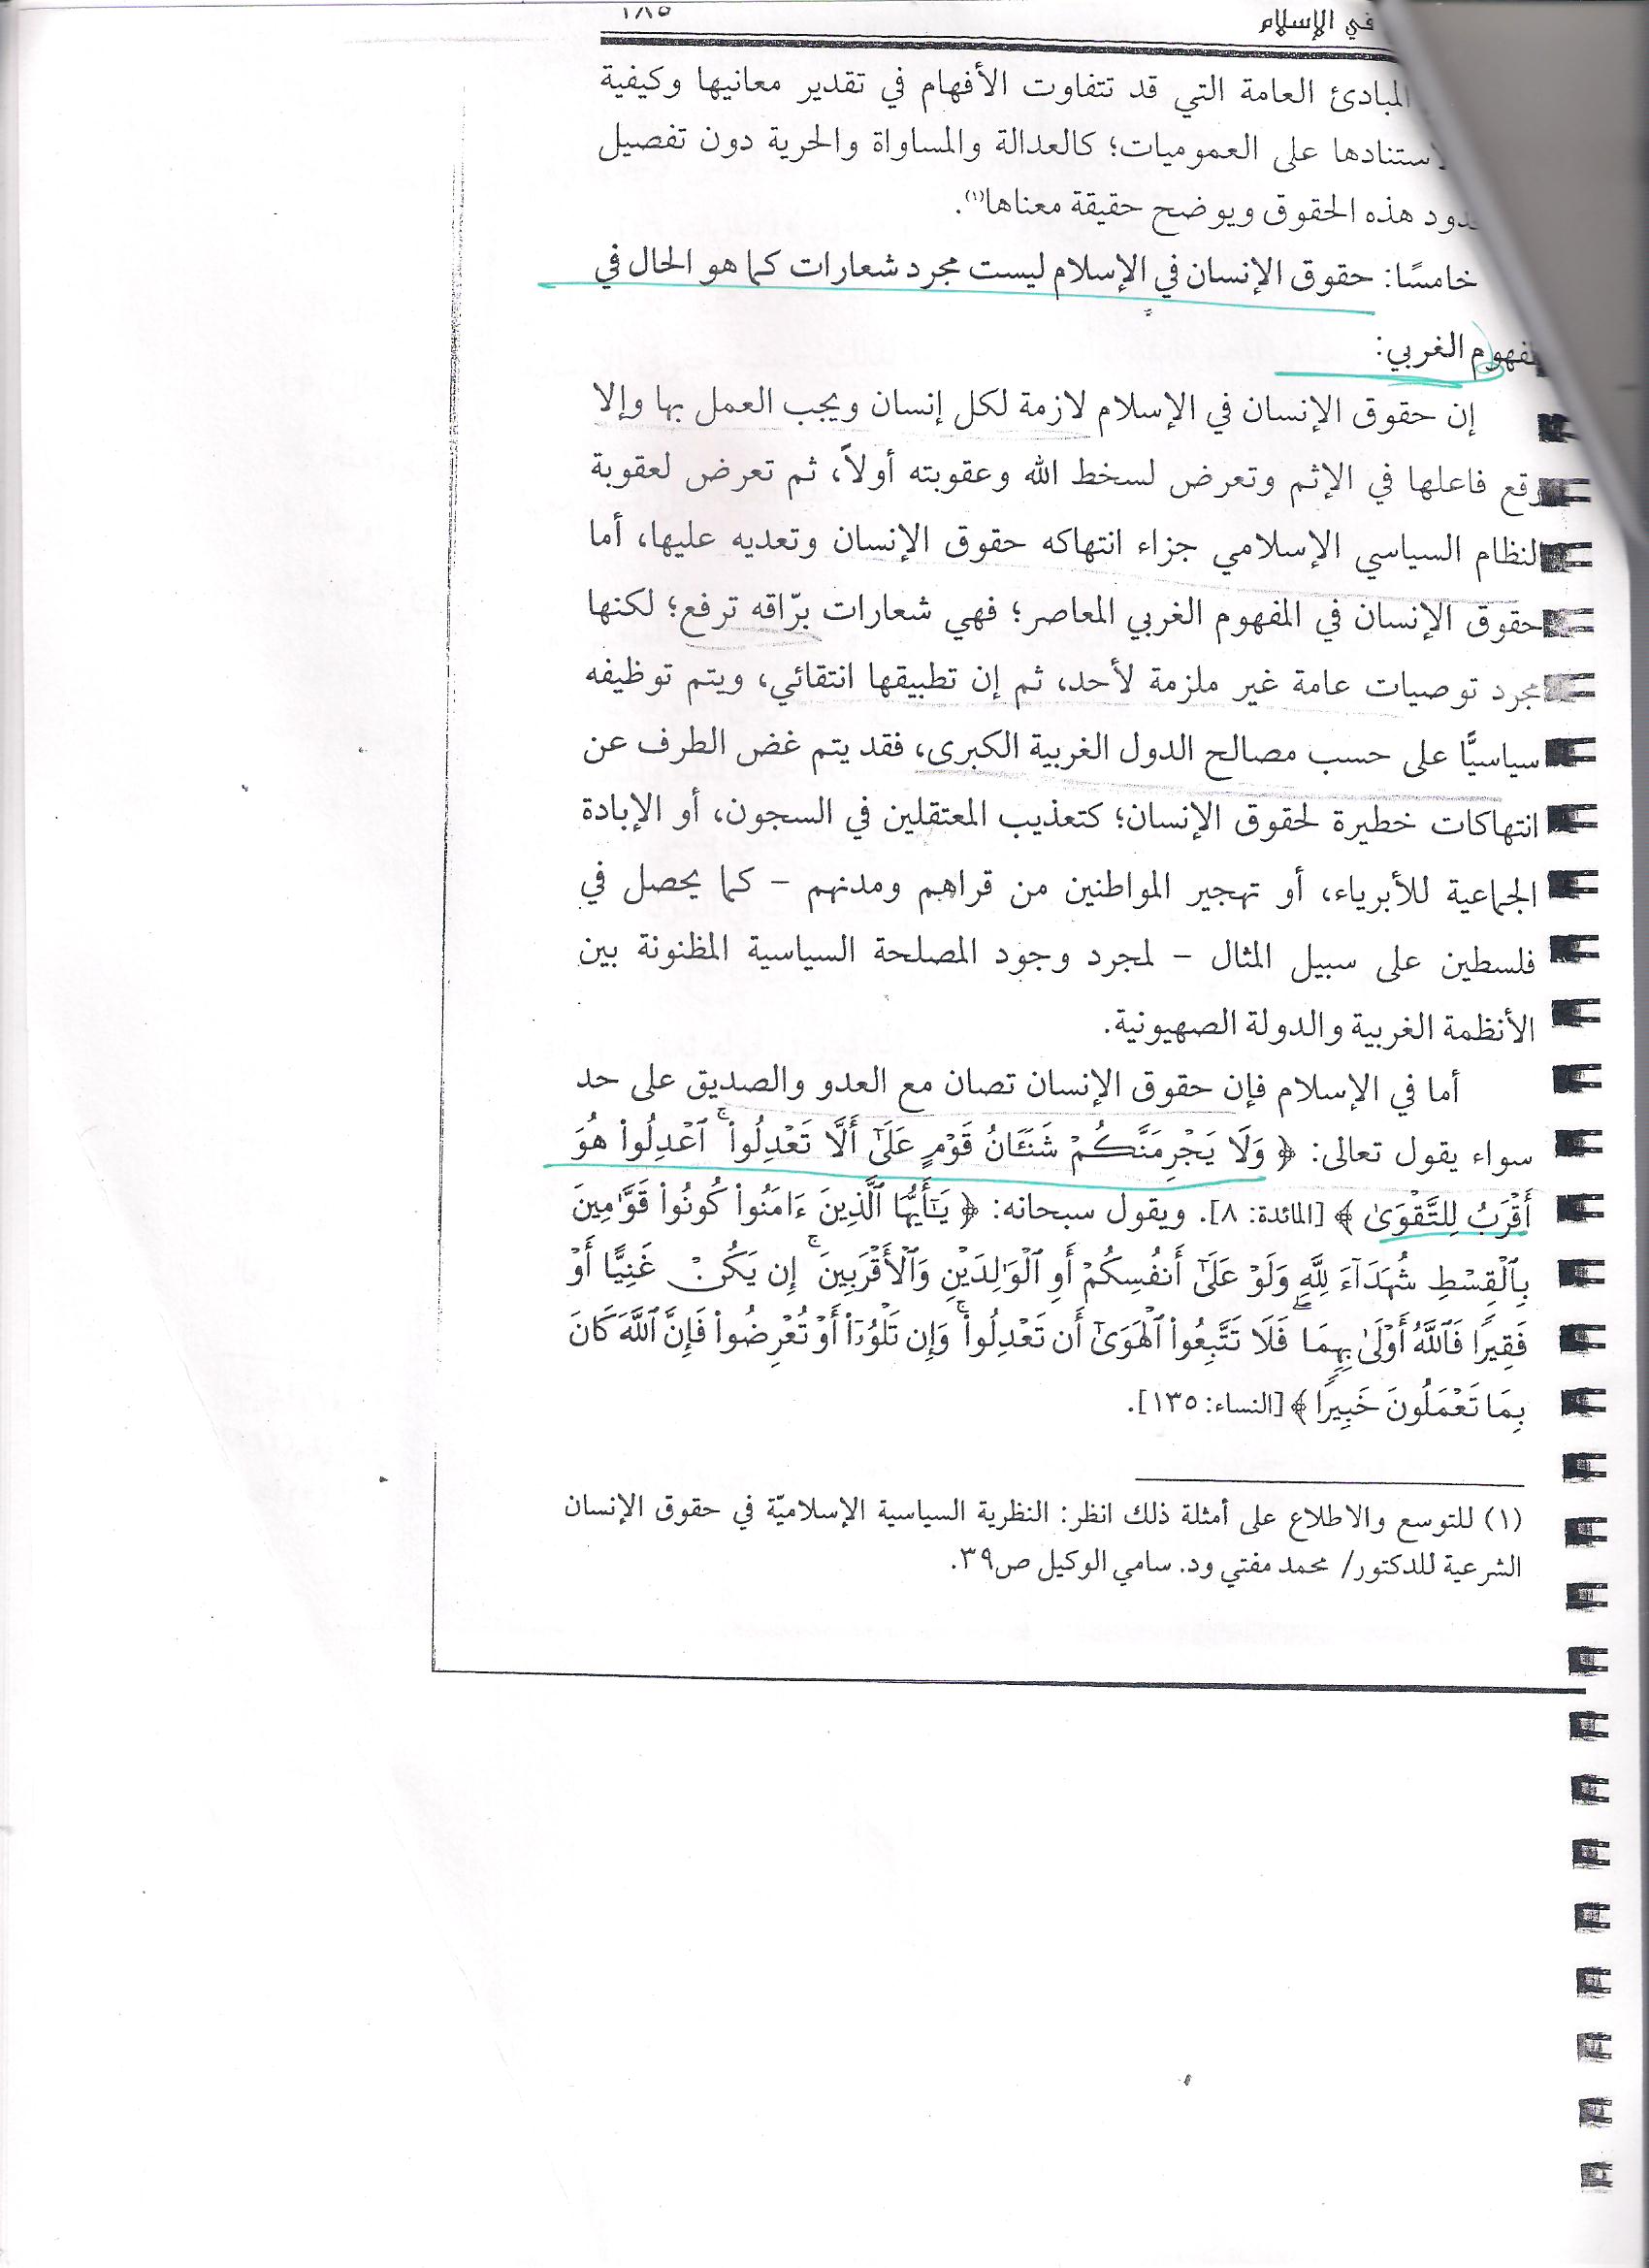 في الإسلام
المبادئ العامة التي قد تتفاوت الأفهام في تقدير معانيها وكيفية
استنادها على العموميات؛ كالعدالة والمساواة والحرية دون تفصيل
دود هذه الحقوق ويوضح حقيقة معناها(١).
خامسًا: حقوق الإنسان في الإسلام ليست مجرد شعارات كما هو الحال في
فهوم الغربي:
إن حقوق الإنسان في الإسلام لازمة لكل إنسان ويجب العمل بها وإلا
وقع فاعلها في الإثم وتعرض لسخط الله وعقوبته أولاً، ثم تعرض لعقوبة
النظام السياسي الإسلامي جزاء انتهاكه حقوق الإنسان وتعديه عليها، أما
حقوق الإنسان في المفهوم الغربي المعاصر؛ فهي شعارات برّاقه ترفع؛ لكنها
مجرد توصيات عامة غير ملزمة لأحد، ثم إن تطبيقها انتقائي، ويتم توظيفه
سياسيًّا على حسب مصالح الدول الغربية الكبرى، فقد يتم غض الطرف عن
انتهاكات خطيرة لحقوق الإنسان؛ كتعذيب المعتقلين في السجون، أو الإبادة
الجماعية للأبرياء، أو تهجير المواطنين من قراهم ومدنهم – كما يحصل في
فلسطين على سبيل المثال – لمجرد وجود المصلحة السياسية المظنونة بين
الأنظمة الغربية والدولة الصهيونية.
أما في الإسلام فإن حقوق الإنسان تصان مع العدو والصديق على حد
سواء يقول تعالى: ﴿ وَلَا يَجْرِمَنَّكُمْ شَنَـَٔانُ قَوْمٍ عَلَىٰٓ أَلَّا تَعْدِلُوا۟ ۚ ٱعْدِلُوا۟ هُوَ
أَقْرَبُ لِلتَّقْوَىٰ ﴾ [المائدة: ٨]. ويقول سبحانه: ﴿ يَـٰٓأَيُّهَا ٱلَّذِينَ ءَامَنُوا۟ كُونُوا۟ قَوَّٰمِينَ
بِٱلْقِسْطِ شُهَدَآءَ لِلَّهِ وَلَوْ عَلَىٰٓ أَنفُسِكُمْ أَوِ ٱلْوَٰلِدَيْنِ وَٱلْأَقْرَبِينَ ۚ إِن يَكُنْ غَنِيًّا أَوْ
فَقِيرًا فَٱللَّهُ أَوْلَىٰ بِهِمَا ۖ فَلَا تَتَّبِعُوا۟ ٱلْهَوَىٰٓ أَن تَعْدِلُوا۟ ۚ وَإِن تَلْوُۥٓا۟ أَوْ تُعْرِضُوا۟ فَإِنَّ ٱللَّهَ كَانَ
بِمَا تَعْمَلُونَ خَبِيرًا ﴾ [النساء: ١٣٥].
(١) للتوسع والاطلاع على أمثلة ذلك انظر: النظرية السياسية الإسلاميّة في حقوق الإنسان
الشرعية للدكتور/ محمد مفتي ود. سامي الوكيل ص٣٩.